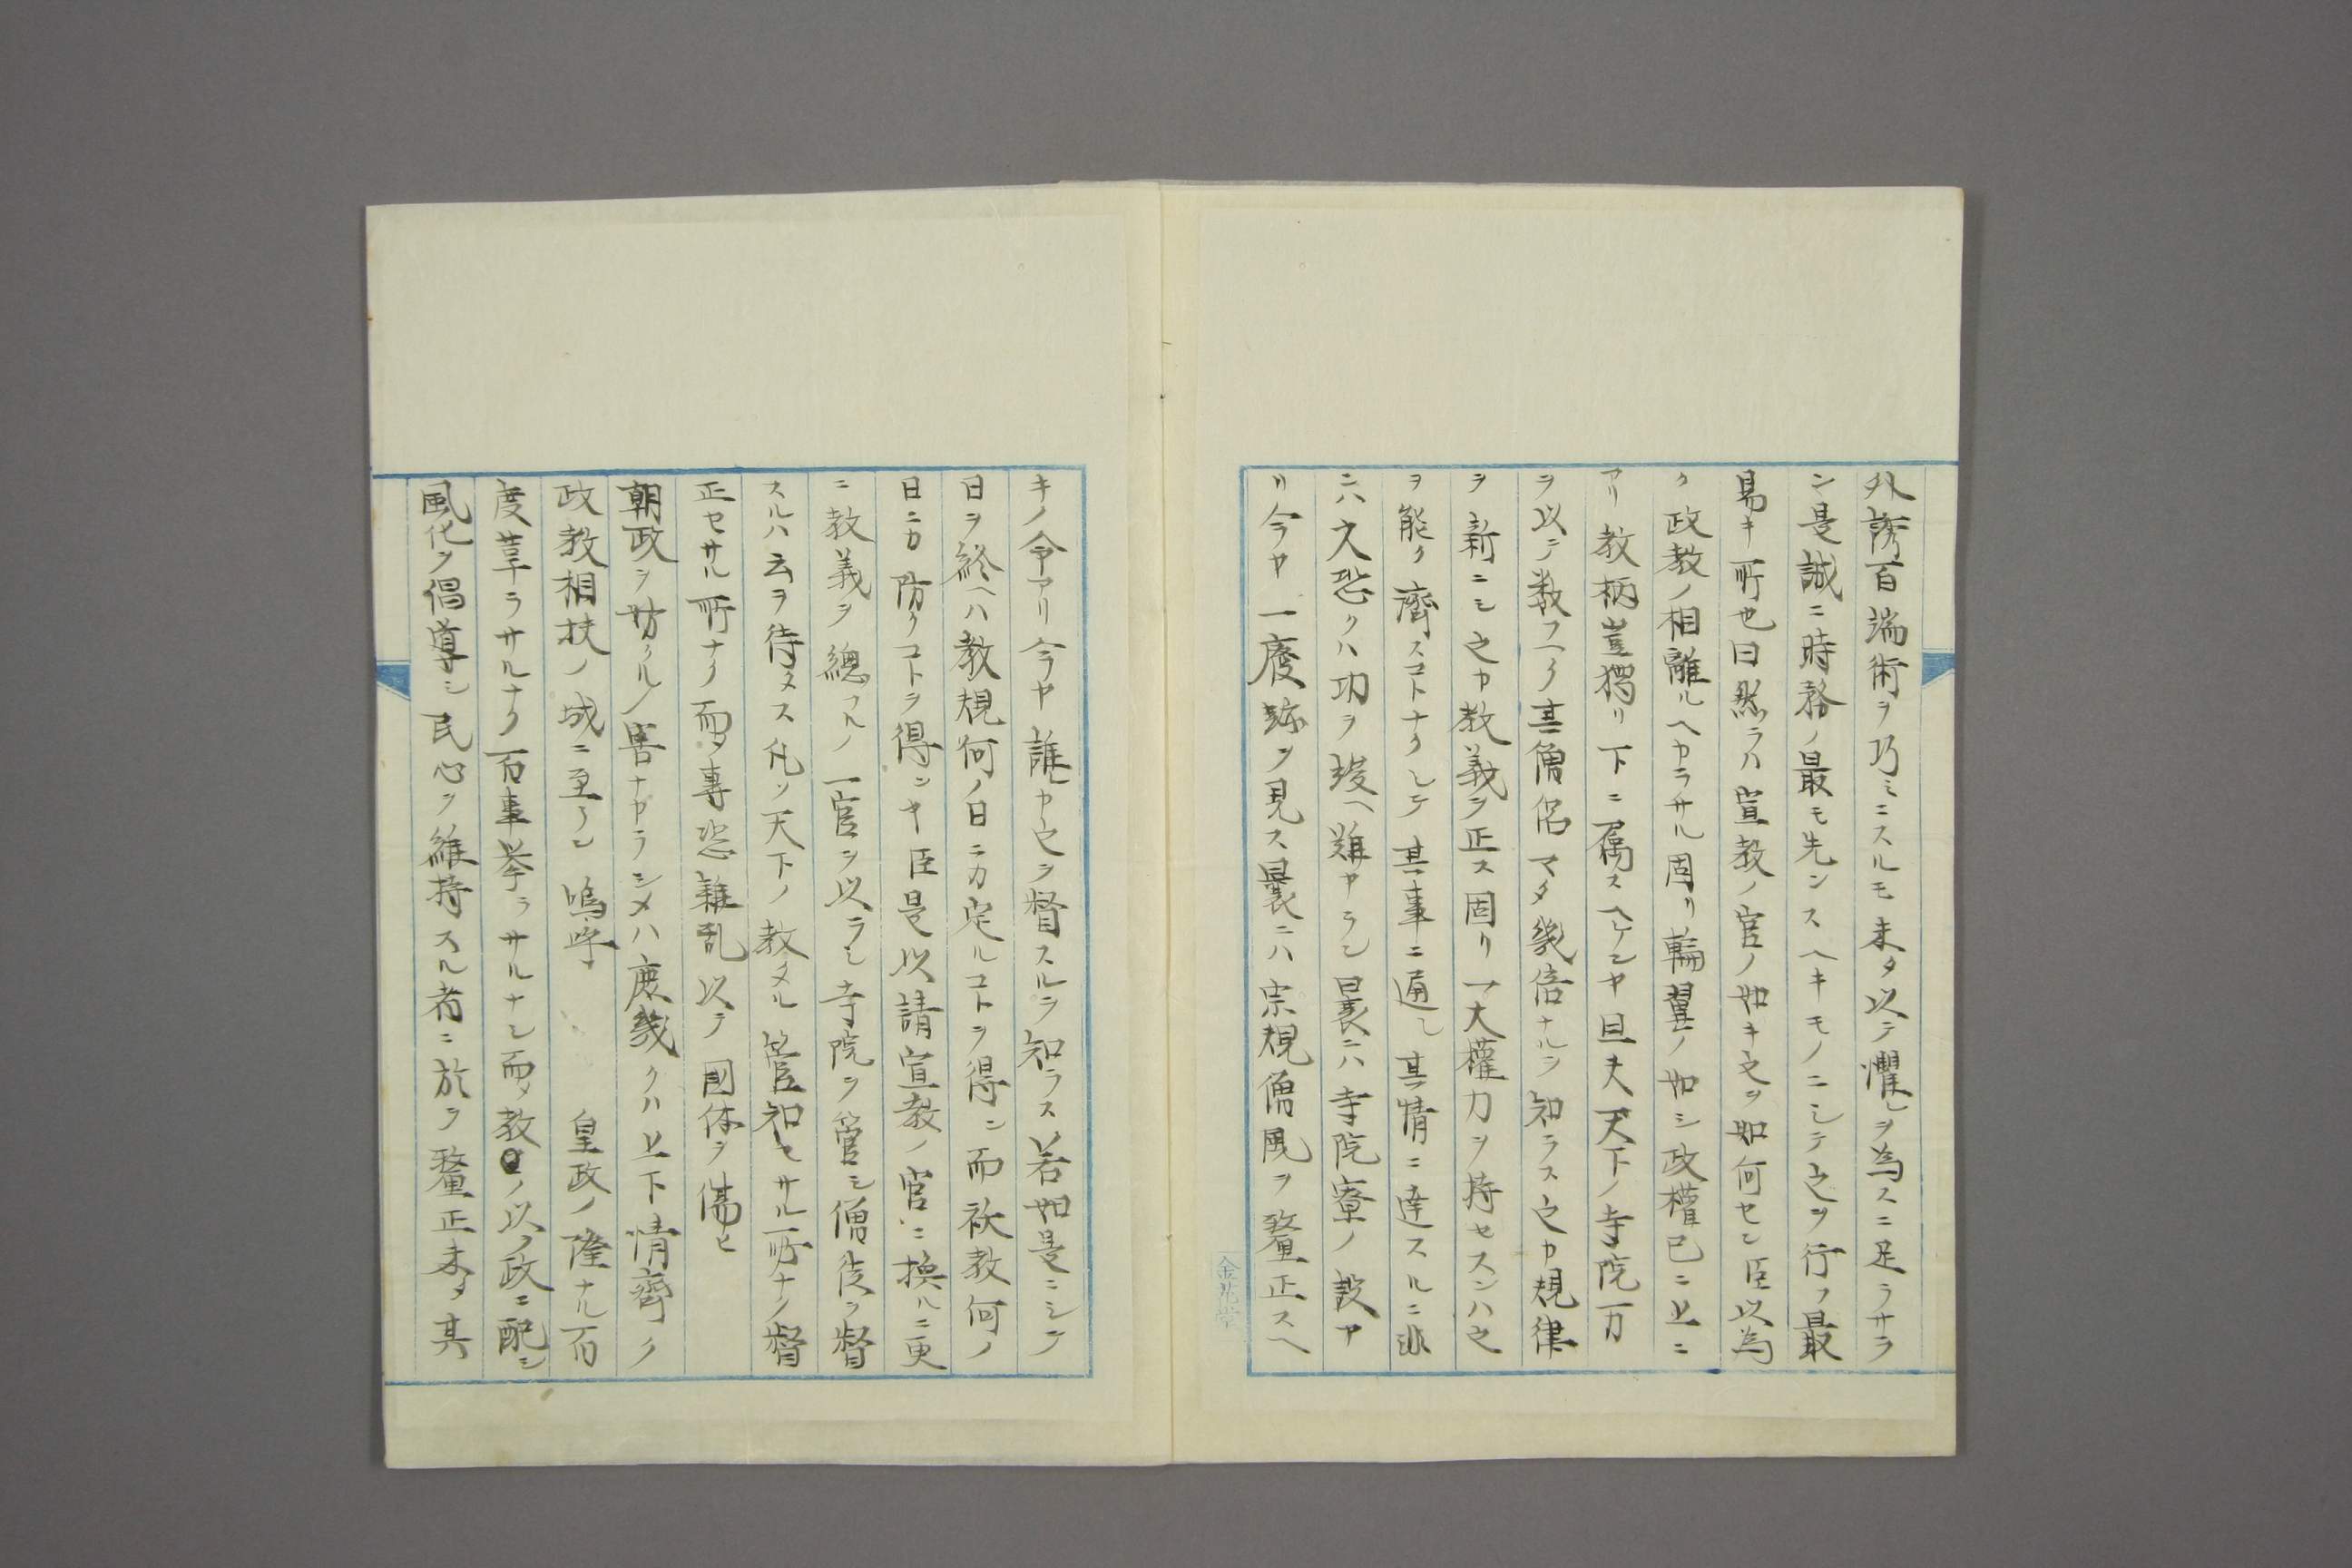 外誘百端術ヲ巧ミニスルモ未タ以テ懼レヲ為スニ足ラサラ
ン是誠ニ時務ノ最モ先ンスヘキモノニシテ之ヲ行フ最
易キ所也曰然ラハ宣教ノ官ノ如キ之ヲ如何セン臣以為
ク政教ノ相離ルヘカラサル固リ輪翼ノ如シ政権已ニ上ニ
アリ教柄豈獨リ下ニ属スヘケンヤ且夫天下ノ寺院万
ヲ以テ数フヘク其僧侶マタ幾倍ナルヲ知ラス之カ規律
ヲ新ニシ之カ教義ヲ正ス固リ一大權力ヲ持セスンハ之
ヲ能ク濟スコトナクシテ其事ニ通シ其情ニ達スルニ非
ニハ又恐クハ功ヲ竣ヘ難カラン曩ニハ寺院寮ノ設ケ
リ今ヤ一廢跡ヲ見ス曩ニハ宗規僧風ヲ釐正スヘ
キノ令アリ今ヤ誰カ之ヲ督スルヲ知ラス若如是ニシテ
日ヲ終ヘハ教規何ノ日ニカ定ルコトヲ得ン而祅教何ノ
日ニカ防クコトヲ得ンヤ臣是以請宣教ノ官ニ換ルニ更
ニ教義ヲ總フルノ一官ヲ以テシ寺院ヲ管シ僧徒ヲ督
スルハ云ヲ待タス凡ソ天下ノ教タル管知セサル所ナク督
正セサル所ナク而シテ専恣雜乱以テ國体ヲ傷ヒ
朝政ヲ妨クルノ害ナカラシメハ庶幾クハ上下情齊ク
政教相扶ノ域ニ至ラン嗚呼 皇政ノ隆ナル百
度革ラサルナク百事挙ラサルナシ而シテ教ノ以テ政ニ配シ
風化ヲ倡導シ民心ヲ維持スル者ニ於テ釐正未タ其